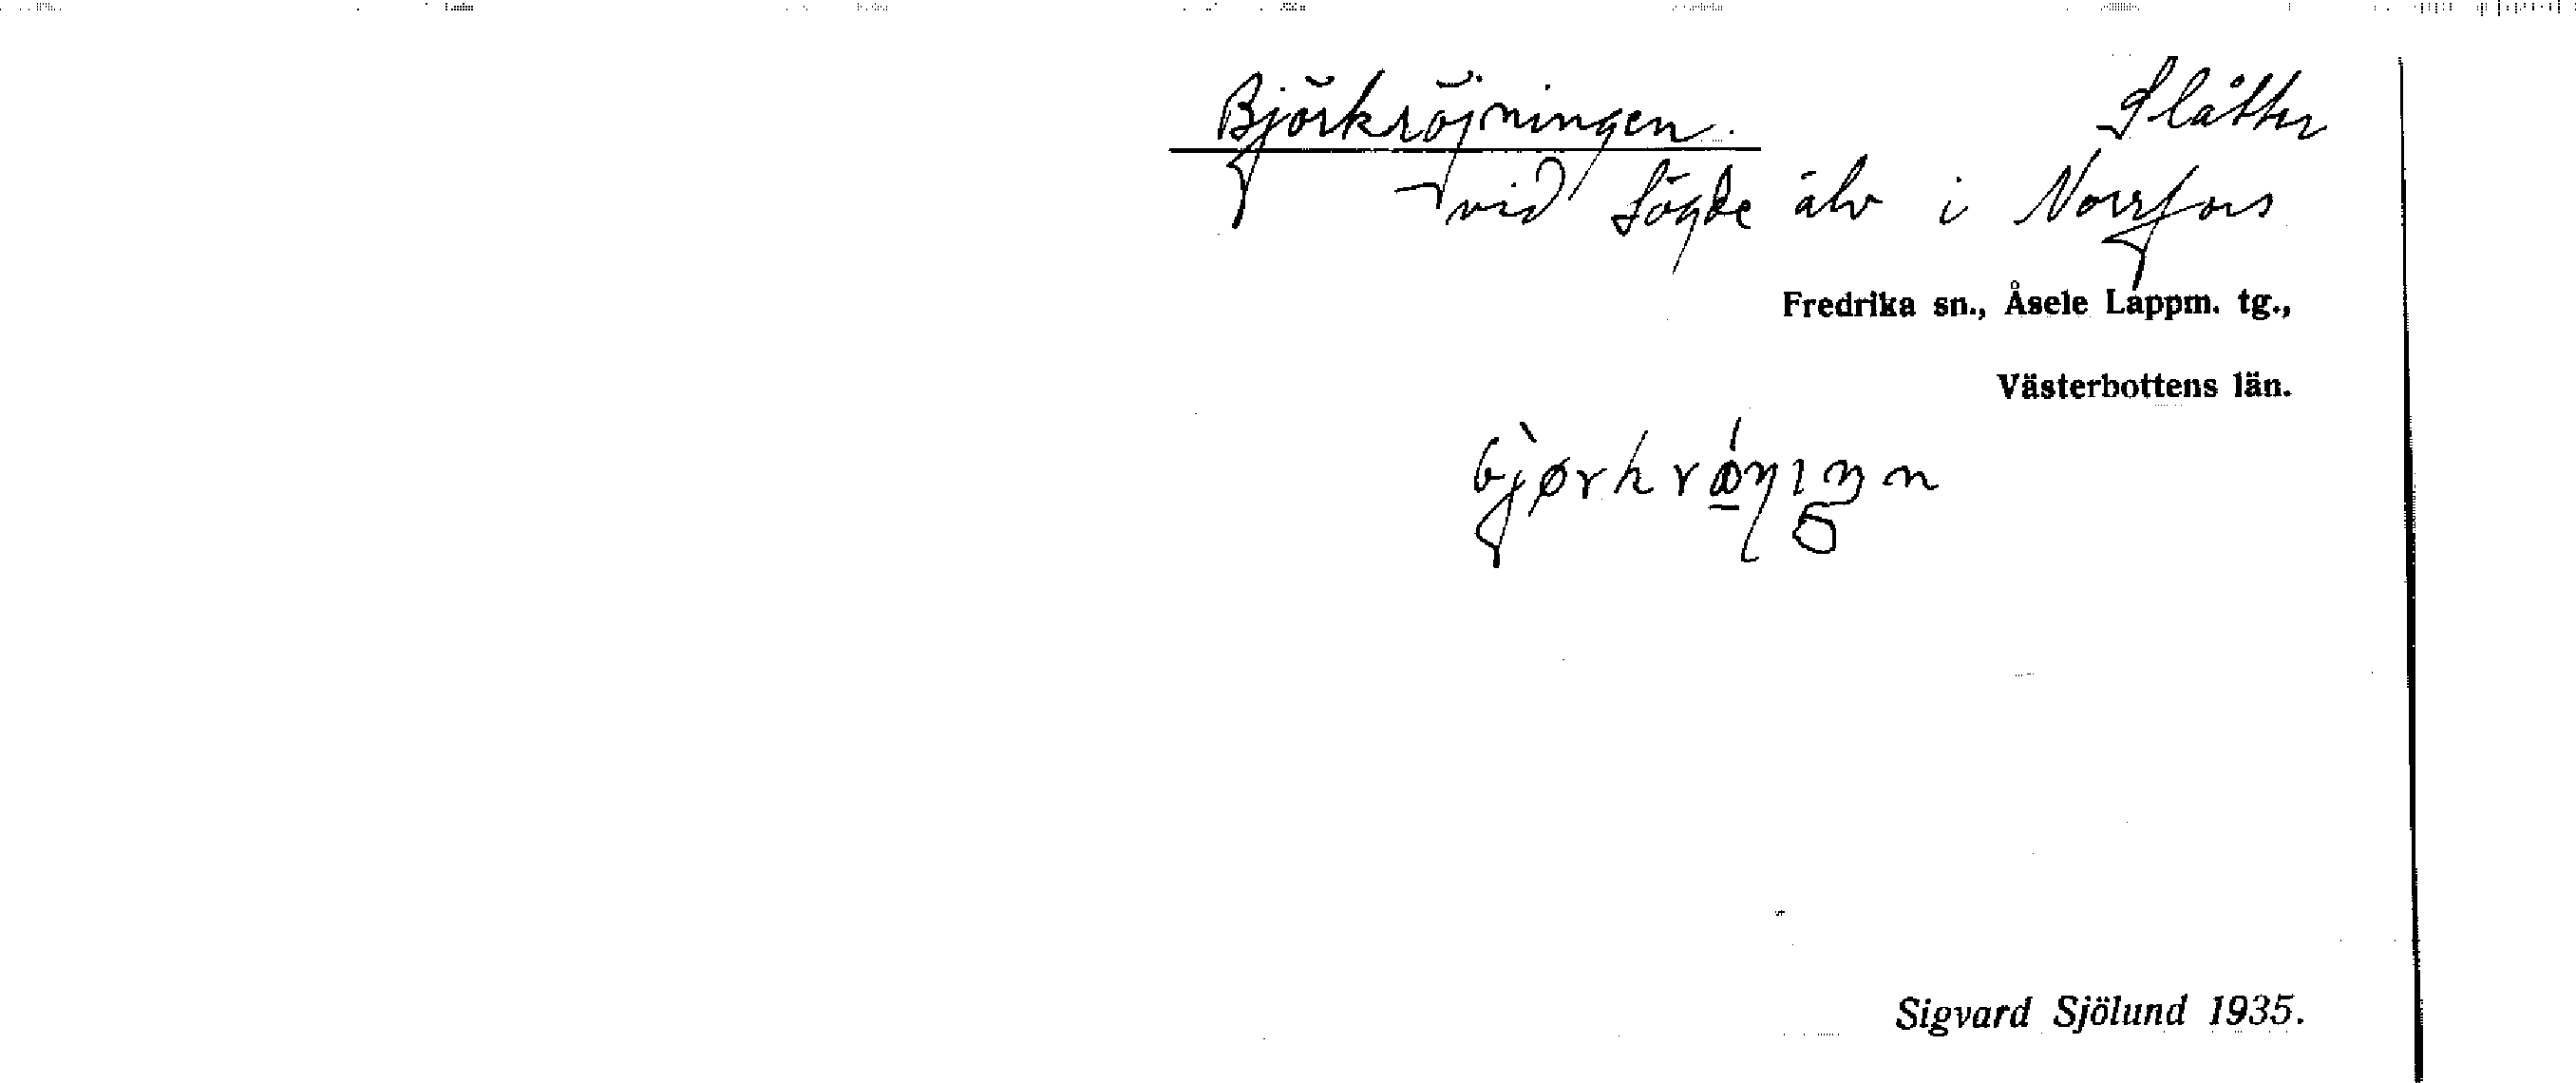 Björkröjningen. Slåtter
vid Lögde älv i Norrfors
Fredrika sn., Åsele Lappm. tg.,
Västerbottens län.
Sigvard Sjölund 1935.